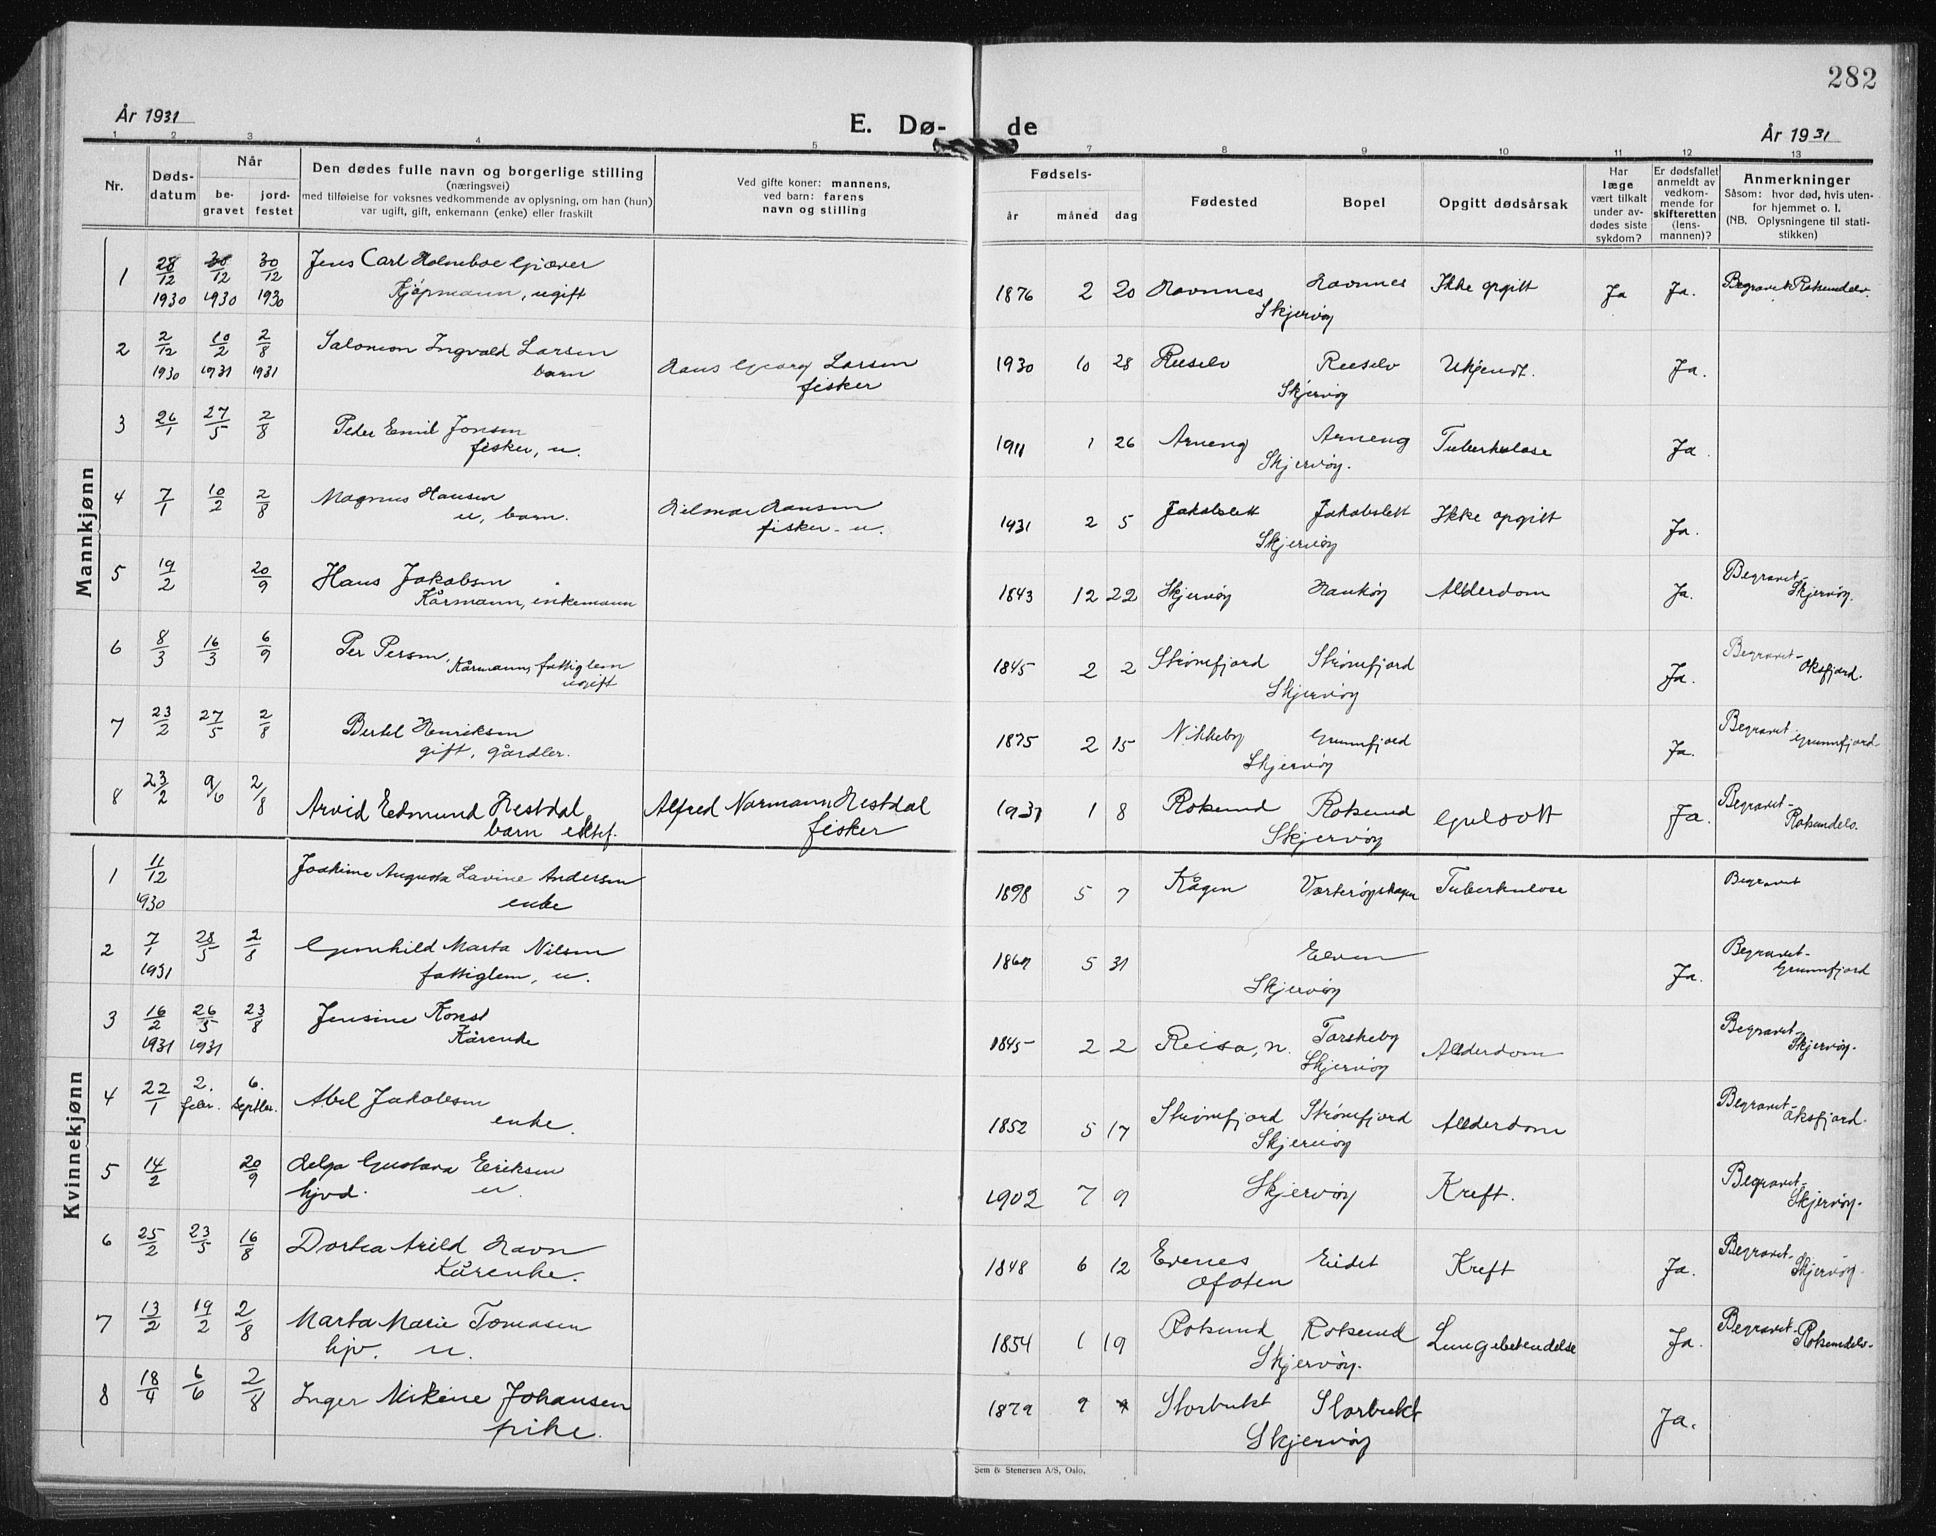 282
År 1931
E. Dø- de
År 1931
1 2 3 4 5 7 8 9 10 11 12 13
Nr.
Døds-
datum
Når
be-
gravet
jord-
festet
Den dødes fulle navn og borgerlige stilling
(næringsvei)
med tilføielse for voksnes vedkommende av oplysning, om han (hun)
var ugift, gift, enkemann (enke) eller fraskilt
Ved gifte koner: mannens,
ved barn: farens
navn og stilling
Fødsels-
år måned dag
Fødested
Bopel
Opgitt dødsårsak
Har
læge
vært tilkalt
under av-
dødes siste
sykdom?
Er dødsfallet
anmeldt av
vedkom-
mende for
skifteretten
(lens-
mannen)?
Anmerkninger
Såsom: hvor død, hvis uten-
for hjemmet o. l.
(NB. Oplysningene til stati-
stikken)
Mannkjønn
1 28/12 30/12 30/12 Jens Carl Holmboe Gjæver
1930 1930 1930 Kjøpmann, ugift
1876 2 20 Havnnes Havnnes Ikke opgitt Ja Ja. Begravet Rotsundelv.
Skjervøy
2 2/12 10/2 2/8 Salomon Ingvald Larsen Hans Georg Larsen
1930 1931 1931 barn fisker
1930 10 28 Reiselv Reiselv Ukjendt. Ja.
Skjervøy
3 26/1 27/5 2/8 Peder Emil Jonsen
fisker, u.
1911 1 26 Arneng Arneng Tuberkulose Ja.
Skjervøy.
4 7/1 10/2 2/8 Magnus Hansen Hilmar Hansen
u, barn. fisker - u.
1931 2 5 Jakobslett Jakobslett Ikke opgitt Ja.
Skjervøy
5 19/2 20/9 Hans Jakobsen
Kårmann, enkemann
1843 12 22 Skjervøy Haukøy Alderdom Ja. Begravet-
Skjervøy.
6 8/3 16/3 6/9 Per Persen, Kårmann, fattiglem
ugift
1845 2 2 Straumfjord Straumfjord Ja. Begravet-
Oksfjord.
Skjervøy
7 23/2 27/5 2/8 Bertel Henriksen
gift, gårdbr.
1875 2 15 Nikkeby Grunnfjord Ja. Begravet-
Grunnfjord
Skjervøy
8 23/2 9/6 2/8 Arvid Edmund Hestdal Alfred Normann Hestdal
barn ektef. fisker
1931 1 8 Rotsund Rotsund Gulsott Ja. Begravet-
Rotsundelv.
Skjervøy
Kvinnekjønn
1 11/12 Joakime Augusta Lavine Andersen
1930 enke
1898 5 7 Kågen Vorterøyskagen Tuberkulose Begravet
2 7/1 28/5 2/8 Gunhild Marta Nilsen
1931 fattiglem, u.
5 31 Elven Ja. Begravet-
Grunnfjord
Skjervøy
3 16/2 26/5 23/8 Jensine Konst
1931 1931 Kårenke
1845 2 2 Reisa, n. Torskeby Alderdom Begravet-
Skjervøy.
Skjervøy
4 22/1 2. febr. 6. septbr. Abel Jakobsen
enke.
1852 5 17 Straumfjord Straumfjord Alderdom Begravet-
Oksfjord.
Skjervøy
5 14/2 20/9 Helga Gustava Eriksen
hjvd. u.
1902 7 9 Skjervøy Kreft. Begravet-
Skjervøy.
6 25/2 23/5 16/8 Dortea Arild Havn
Kårenke.
1848 6 12 Evenes Eidet Kreft Ja. Begravet-
Skjervøy.
Ofoten
7 13/2 19/2 2/8 Marta Marie Tomasen
hjv. u.
1854 1 19 Rotsund Rotsund Lungebetendelse Ja. Begravet-
Rotsundelv.
Skjervøy.
8 18/4 6/6 2/8 Inger Nikine Johansen
pike.
1879 9 Storbukt Storbukt Ja.
Skjervøy
Sem & Stenersen A/S, Oslo.